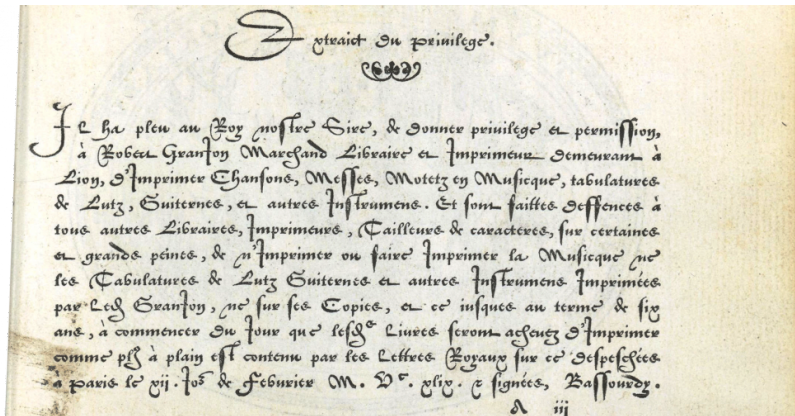 Extraict du Privilege.
Il ha pleu au Roy nostre Sire, de donner privilege et permission,
à Robert GranJon Marchand Libraire et Imprimeur demeurant à
Lion, d'Imprimer Chansons, Messes, Motetz en Musicque, tabulatures
de Lutz, Guiternes, et autres Instrumens. Et sont faittes deffences à
tous autres Libraires, Imprimeurs, Tailleurs de caracteres, sur certaines
et grandes peines, de n'Imprimer ou faire Imprimer la Musicque ne
les Tabulatures de Lutz Guiternes et autres Instrumens Imprimées
par Led GranJon, ne sur ses Copies, et ce iusques au terme de six
ans, à commencer du Jour que lesd Livres seront achevez d'Imprimer
comme plꝰ à plain est contenu par les Lettres Royaux sur ce despeschées
à Paris le xii. Joꝰ de Febvrier M. Vᶜ. xlix. & signées, Bassourdy.
A iii